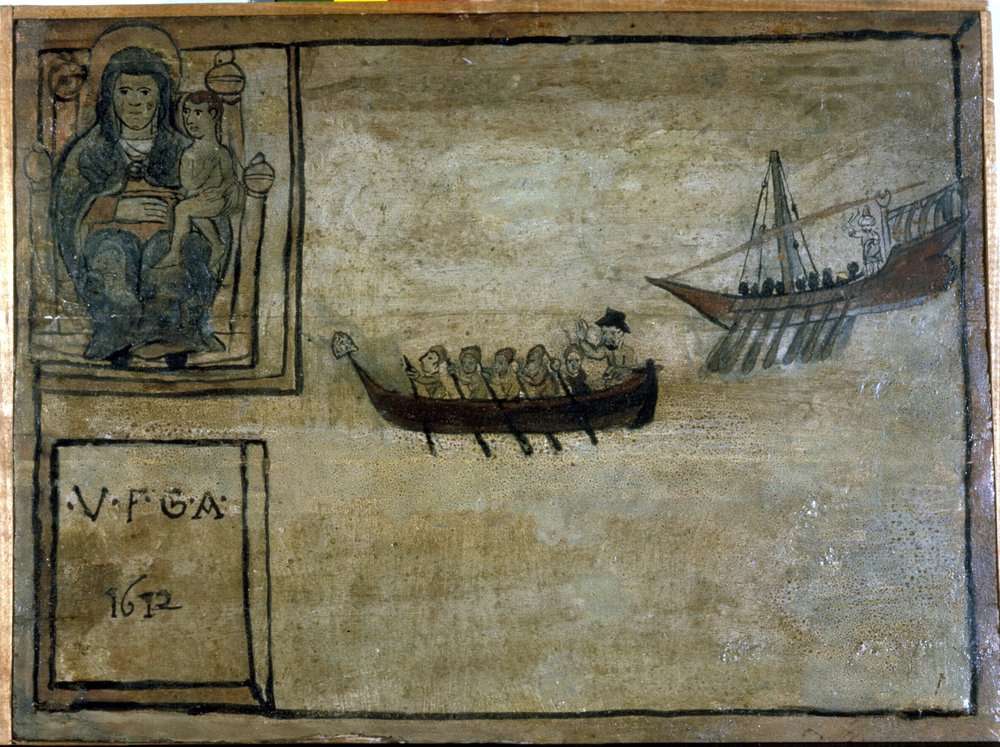 ·V·F·G·A·
1672